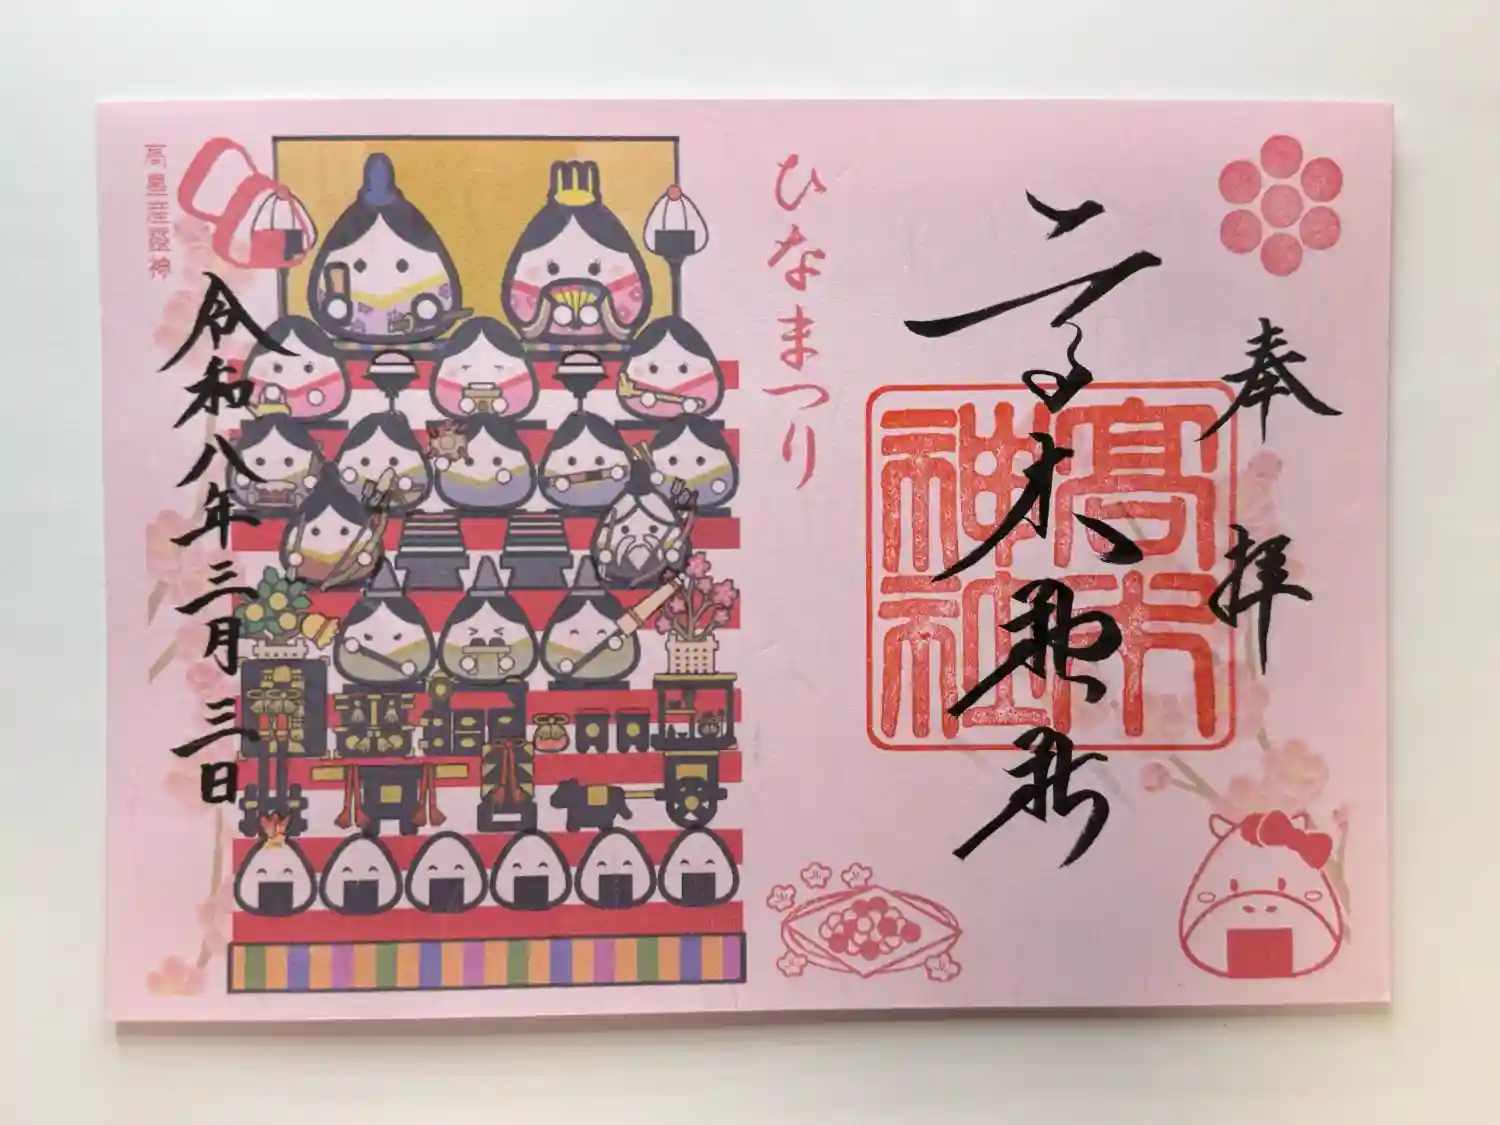 奉拝
高木神社
高木神社
ひなまつり
高皇産霊神
令和八年三月三日